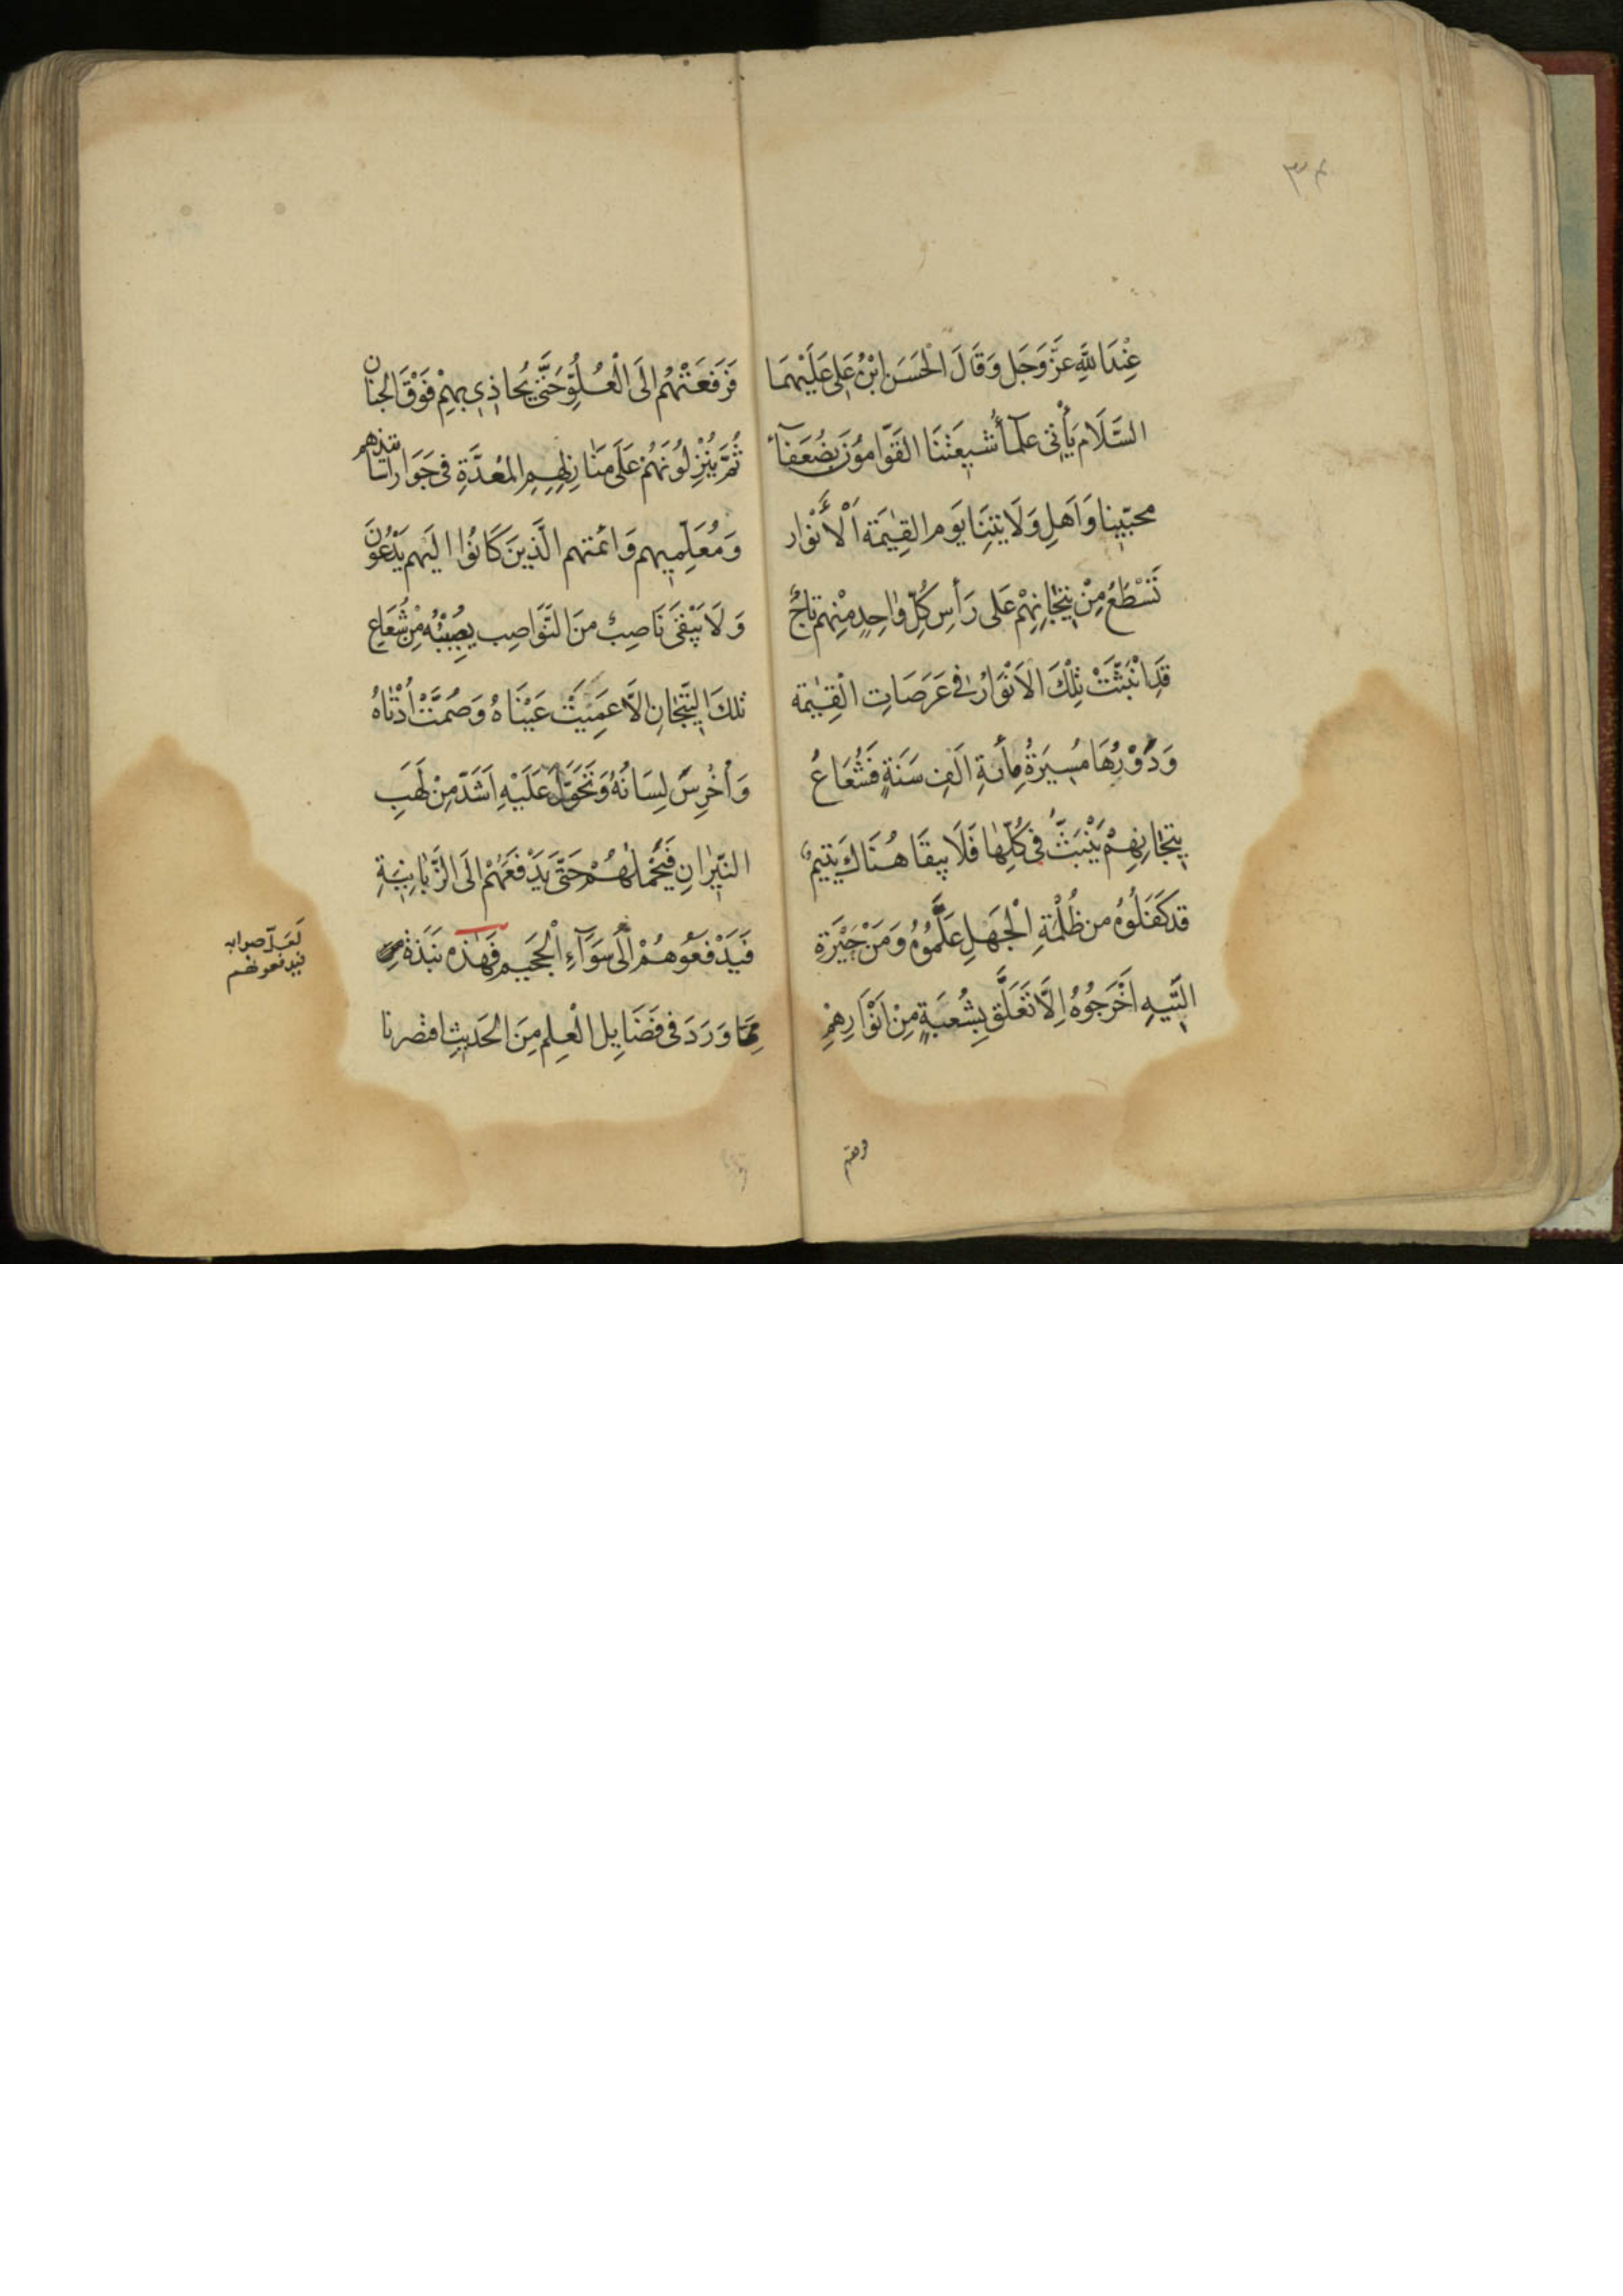 عِنْدَ اللهِ عَزَّ وَجَل وَقَالَ الْحَسَن ابْنُ عَلى عَلَيْهِمَا
السَّلَام يَأْتى علمآءُ شيعَتنَا القَوَّامُوْنَ بِضُعَفآءِ
محبّينا وَاَهلِ وَلَايتِنَا يَوم القِيٰمَة اَلْأَنْوَار
تَسْطَعُ مِنْ تيْجَانِهِمْ عَلى رَأسِ كُلِّ وٰاحِدٍ مِنْهم تاجٌ
قَدِ انْبَثَّتْ تِلْكَ الاَنْوَارُ فى عَرَصَاتِ الْقِيٰمة
وَدُوْرِهَا مَسيرَةُ مِأَئةِ اَلفِ سَنَةٍ فَشُعَاعُ
تيجَانِهِمْ يَنْبَثُّ فى كُلِّهٰا فَلَا يبقَا هُنَاكَ يَتيمٌ
قد كَفَلُوْهُ من ظُلْمَةِ الْجَهلِ عَلَّمُوْهُ وَمَنْ حَيْرَةِ
التّيهِ اَخْرَجُوْهُ اِلَّا تَعَلَّق بِشُعبَةٍ مِنْ اَنْوَارِهِمْ
فرفعتهم
فَرَفعَتْهُم الَى الْعُلُوِّ حَتَّى يُحاذِى بِهِمْ فَوْقَ الجنان
ثُمَّ يُنْزِلُوْنَهُمْ عَلَى مَنَازِلهِمِ المُعدَّةِ فى جَوَار استاتيذهم
وَمُعَلِّميهم وَائمتهم الَّذينَ كَانُوْا اليَهم يَدْعُوْنَ
وَلَا يَبْقَى نَاصِبٌ مِنَ النَّوَاصِبِ يصِيْبُه مِنْ شُعَاعِ
تلكَ التّيجَانِ الَّا عَمِيَتْ عَيْنَاهُ وَصُمَّتْ اُذْنَاهُ
وَأُخْرِسَ لِسَانُهُ وَتَحَوَّلَ عَلَيْهِ اَشَدّ مِنْ لَهَبِ
النّيْرٰانِ فَيَحْمِلهُمْ حَتَّى يَدْفَعَهُمْ الَى الزَّبَانِيَةِ
فَيَدْفَعُوْهُمْ الَى سَوَآءِ الْجَحيمِ فَهٰذِه نَبَذة
لَعَلّ صوابه
فيدفعونهم
مِمَّا وَرَدَ فى فَضَايِل الْعِلمِ مِنَ الحَديثِ اقتصرنا